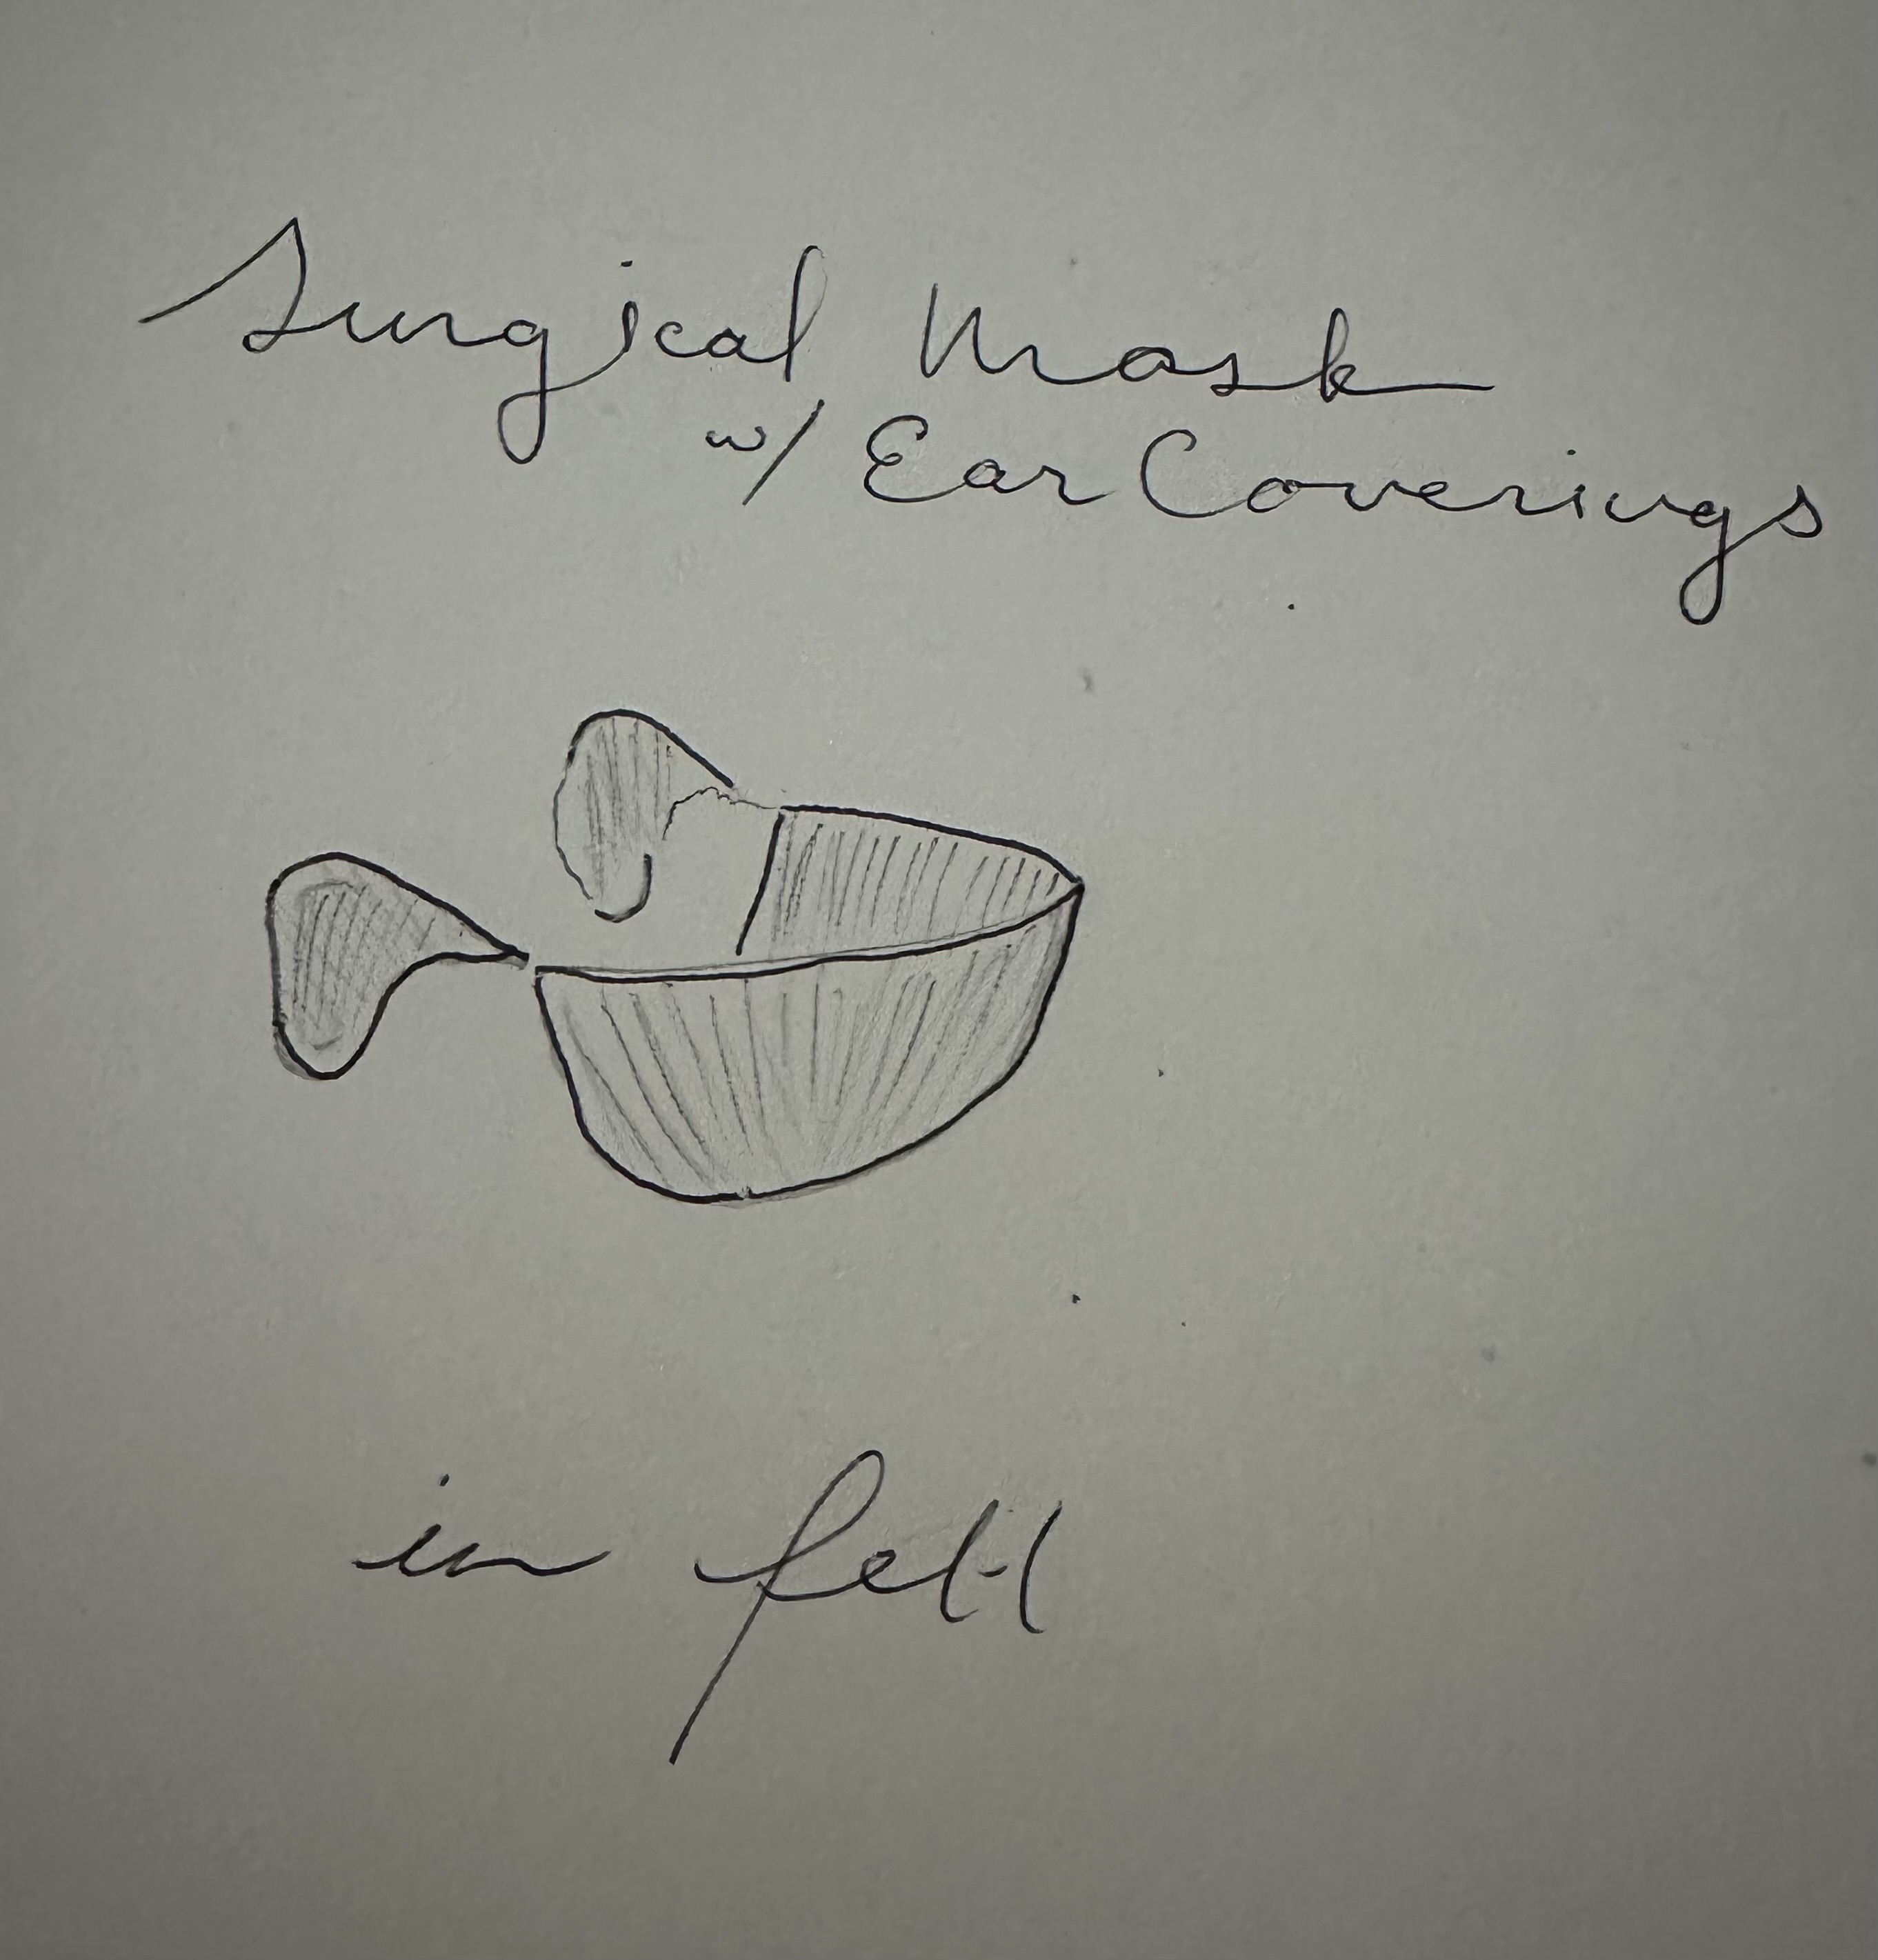 Surgical Mask
w/ Ear Coverings
in felt